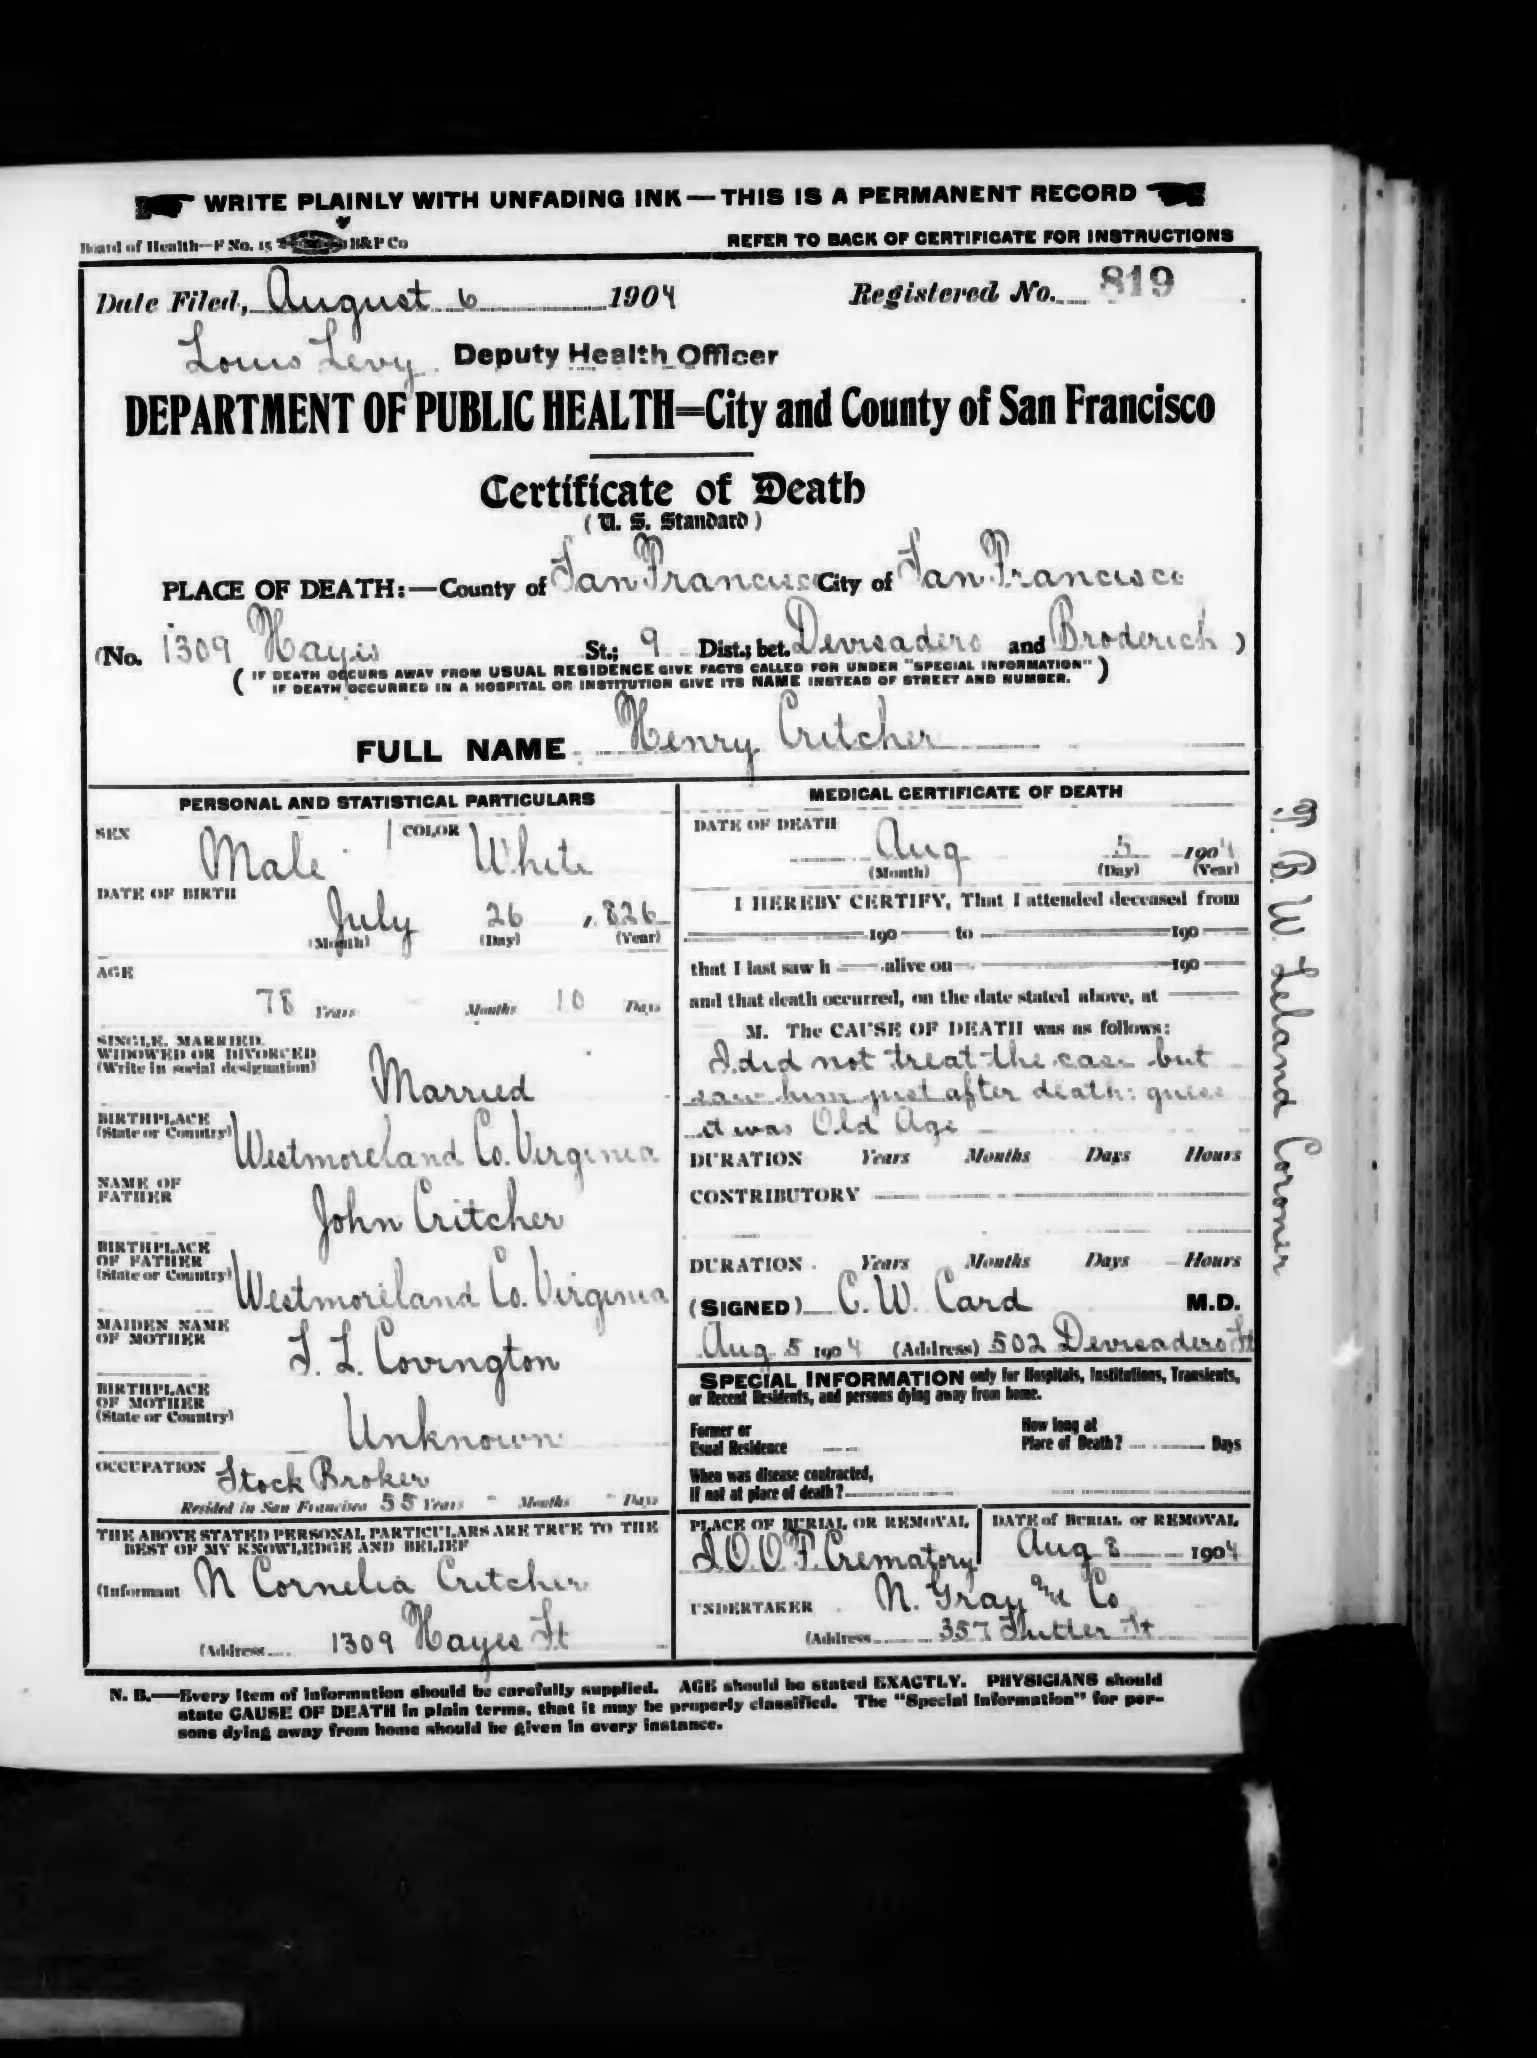 WRITE PLAINLY WITH UNFADING INK—THIS IS A PERMANENT RECORD
Board of Health—F No. 15 B&P Co
REFER TO BACK OF CERTIFICATE FOR INSTRUCTIONS
Date Filed, August 6 1904 Registered No. 819
Louis Levy Deputy Health Officer
DEPARTMENT OF PUBLIC HEALTH=City and County of San Francisco
Certificate of Death
(U. S. Standard)
PLACE OF DEATH:—County of San Francisco City of San Francisco
(No. 1309 Hayes St.; 9 Dist.; bet. Devisadero and Broderick)
(IF DEATH OCCURS AWAY FROM USUAL RESIDENCE GIVE FACTS CALLED FOR UNDER "SPECIAL INFORMATION"
IF DEATH OCCURRED IN A HOSPITAL OR INSTITUTION GIVE ITS NAME INSTEAD OF STREET AND NUMBER.)
FULL NAME Henry Critcher
PERSONAL AND STATISTICAL PARTICULARS
SEX Male COLOR White
DATE OF BIRTH
July 26 1826
(Month) (Day) (Year)
AGE
78 Years Months 10 Days
SINGLE, MARRIED,
WIDOWED OR DIVORCED
(Write in social designation)
Married
BIRTHPLACE
(State or Country)
Westmoreland Co. Virginia
NAME OF
FATHER
John Critcher
BIRTHPLACE
OF FATHER
(State or Country)
Westmoreland Co. Virginia
MAIDEN NAME
OF MOTHER
S. L. Covington
BIRTHPLACE
OF MOTHER
(State or Country)
Unknown
OCCUPATION Stock Broker
Resided in San Francisco 55 Years " Months " Days
THE ABOVE STATED PERSONAL PARTICULARS ARE TRUE TO THE
BEST OF MY KNOWLEDGE AND BELIEF
(Informant N Cornelia Critcher
(Address 1309 Hayes St
MEDICAL CERTIFICATE OF DEATH
DATE OF DEATH
Aug 5 1904
(Month) (Day) (Year)
I HEREBY CERTIFY, That I attended deceased from
190 to 190
that I last saw h alive on 190
and that death occurred, on the date stated above, at
M. The CAUSE OF DEATH was as follows:
I did not treat the case but
saw him just after death: guess
it was Old Age
DURATION Years Months Days Hours
CONTRIBUTORY
DURATION Years Months Days Hours
(SIGNED) C. W. Card M.D.
Aug 5 1904 (Address) 502 Devisadero St
SPECIAL INFORMATION only for Hospitals, Institutions, Transients,
or Recent Residents, and persons dying away from home.
Former or
Usual Residence
How long at
Place of Death? Days
When was disease contracted,
If not at place of death?
PLACE OF BURIAL OR REMOVAL
I.O.O.F. Crematory
DATE of BURIAL or REMOVAL
Aug 8 1904
UNDERTAKER N. Gray and Co
(Address 357 Sutter St
T. B. W. Leland Coroner
N. B.—Every item of information should be carefully supplied. AGE should be stated EXACTLY. PHYSICIANS should
state CAUSE OF DEATH in plain terms, that it may be properly classified. The "Special Information" for per-
sons dying away from home should be given in every instance.